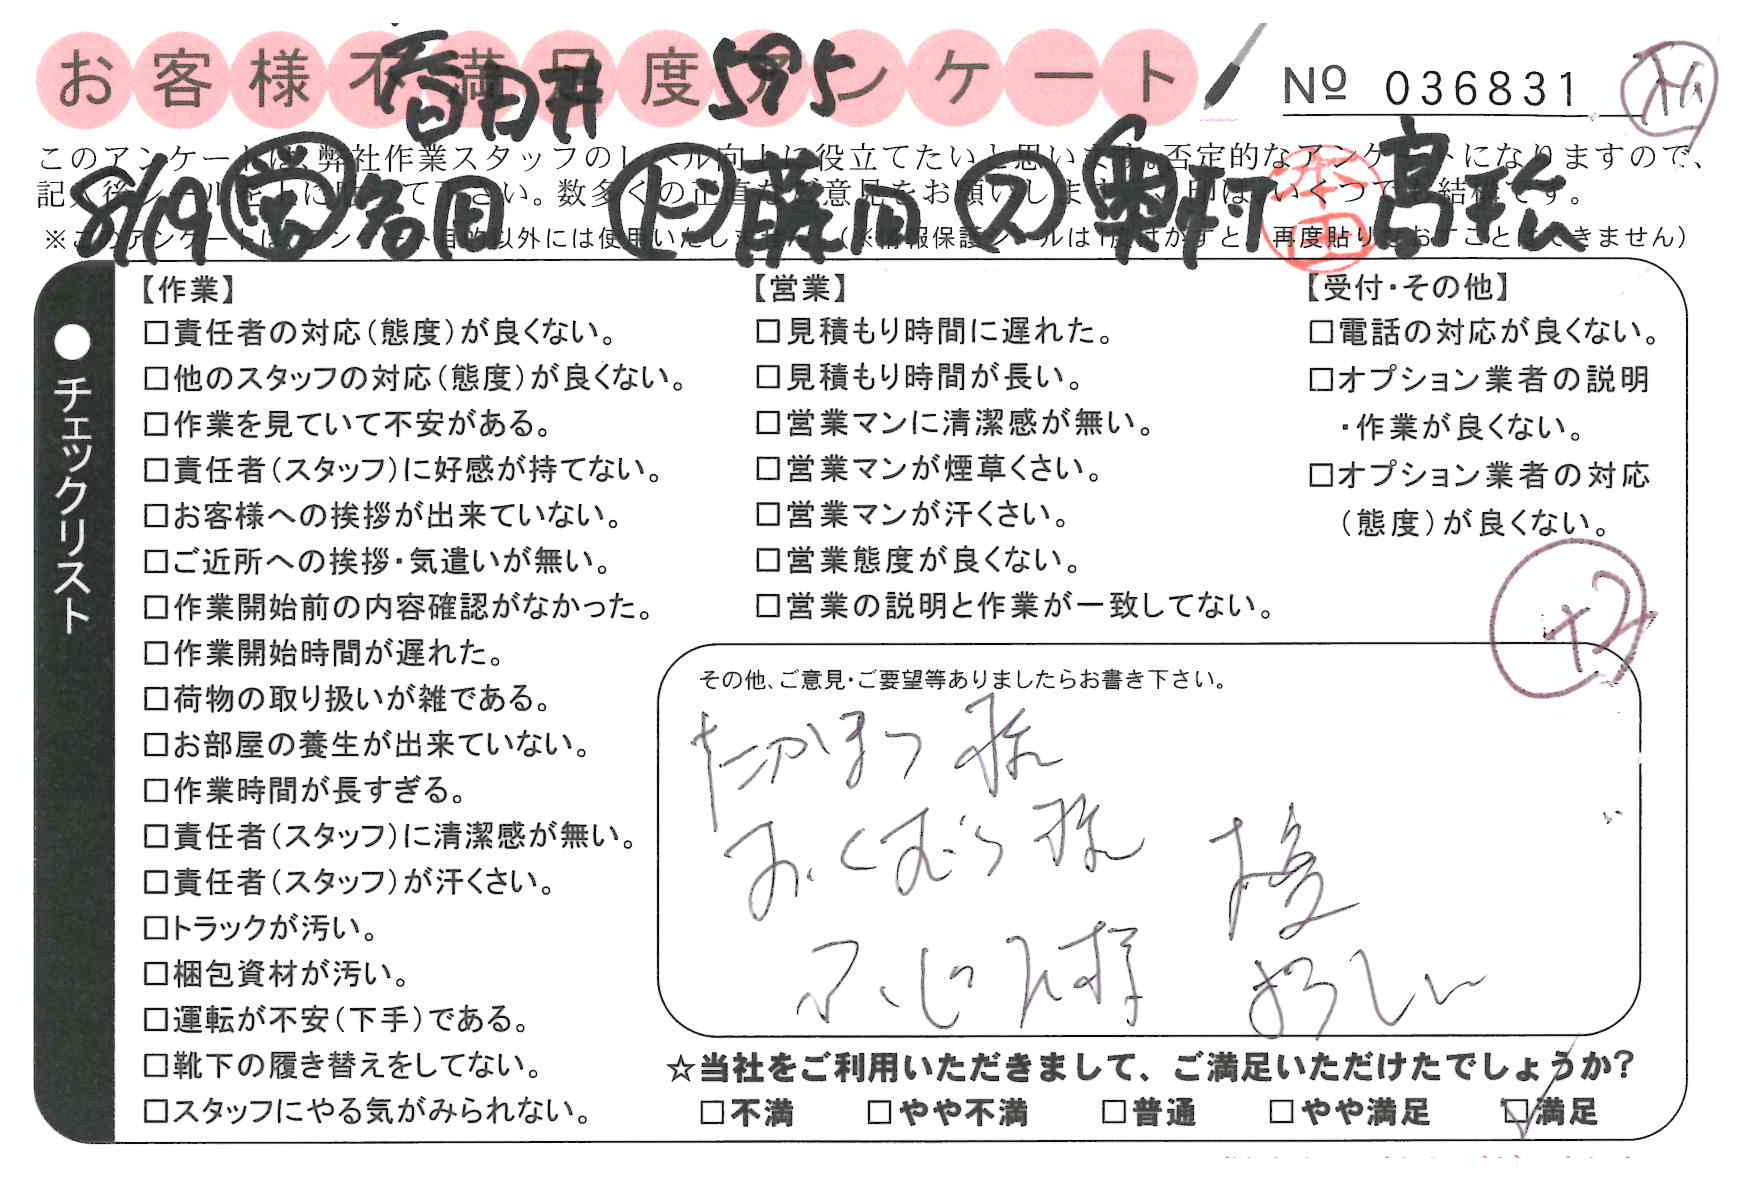 お客様不満足度アンケート
春日井 595
№ 036831
このアンケートは、弊社作業スタッフのレベル向上に役立てたいと思います。否定的なアンケートになりますので、
記入後シールを上に貼って下さい。数多くの正直なご意見をお願いします。
8/19 営 名田 ド 藤田 ス 奥村 高松
本田
※このアンケートは、アンケート目的以外には使用いたしません。(※情報保護シールは1度付かすと、再度貼りなおすことはできません)
●チェックリスト
【作業】
□責任者の対応(態度)が良くない。
□他のスタッフの対応(態度)が良くない。
□作業を見ていて不安がある。
□責任者(スタッフ)に好感が持てない。
□お客様への挨拶が出来ていない。
□ご近所への挨拶・気遣いが無い。
□作業開始前の内容確認がなかった。
□作業開始時間が遅れた。
□荷物の取り扱いが雑である。
□お部屋の養生が出来ていない。
□作業時間が長すぎる。
□責任者(スタッフ)に清潔感が無い。
□責任者(スタッフ)が汗くさい。
□トラックが汚い。
□梱包資材が汚い。
□運転が不安(下手)である。
□靴下の履き替えをしてない。
□スタッフにやる気がみられない。
【営業】
□見積もり時間に遅れた。
□見積もり時間が長い。
□営業マンに清潔感が無い。
□営業マンが煙草くさい。
□営業マンが汗くさい。
□営業態度が良くない。
□営業の説明と作業が一致してない。
【受付・その他】
□電話の対応が良くない。
□オプション業者の説明
・作業が良くない。
□オプション業者の対応
(態度)が良くない。
+2
その他、ご意見・ご要望等ありましたらお書き下さい。
たかまつ様
おくむら様
ふじた様
☆当社をご利用いただきまして、ご満足いただけたでしょうか?
□不満 □やや不満 □普通 □やや満足 ☑満足